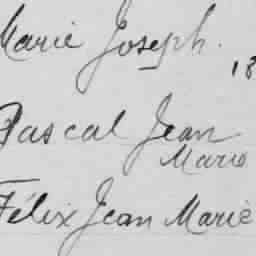 Marie Joseph.
18
Pascal Jean
Marie
Félix Jean Marie